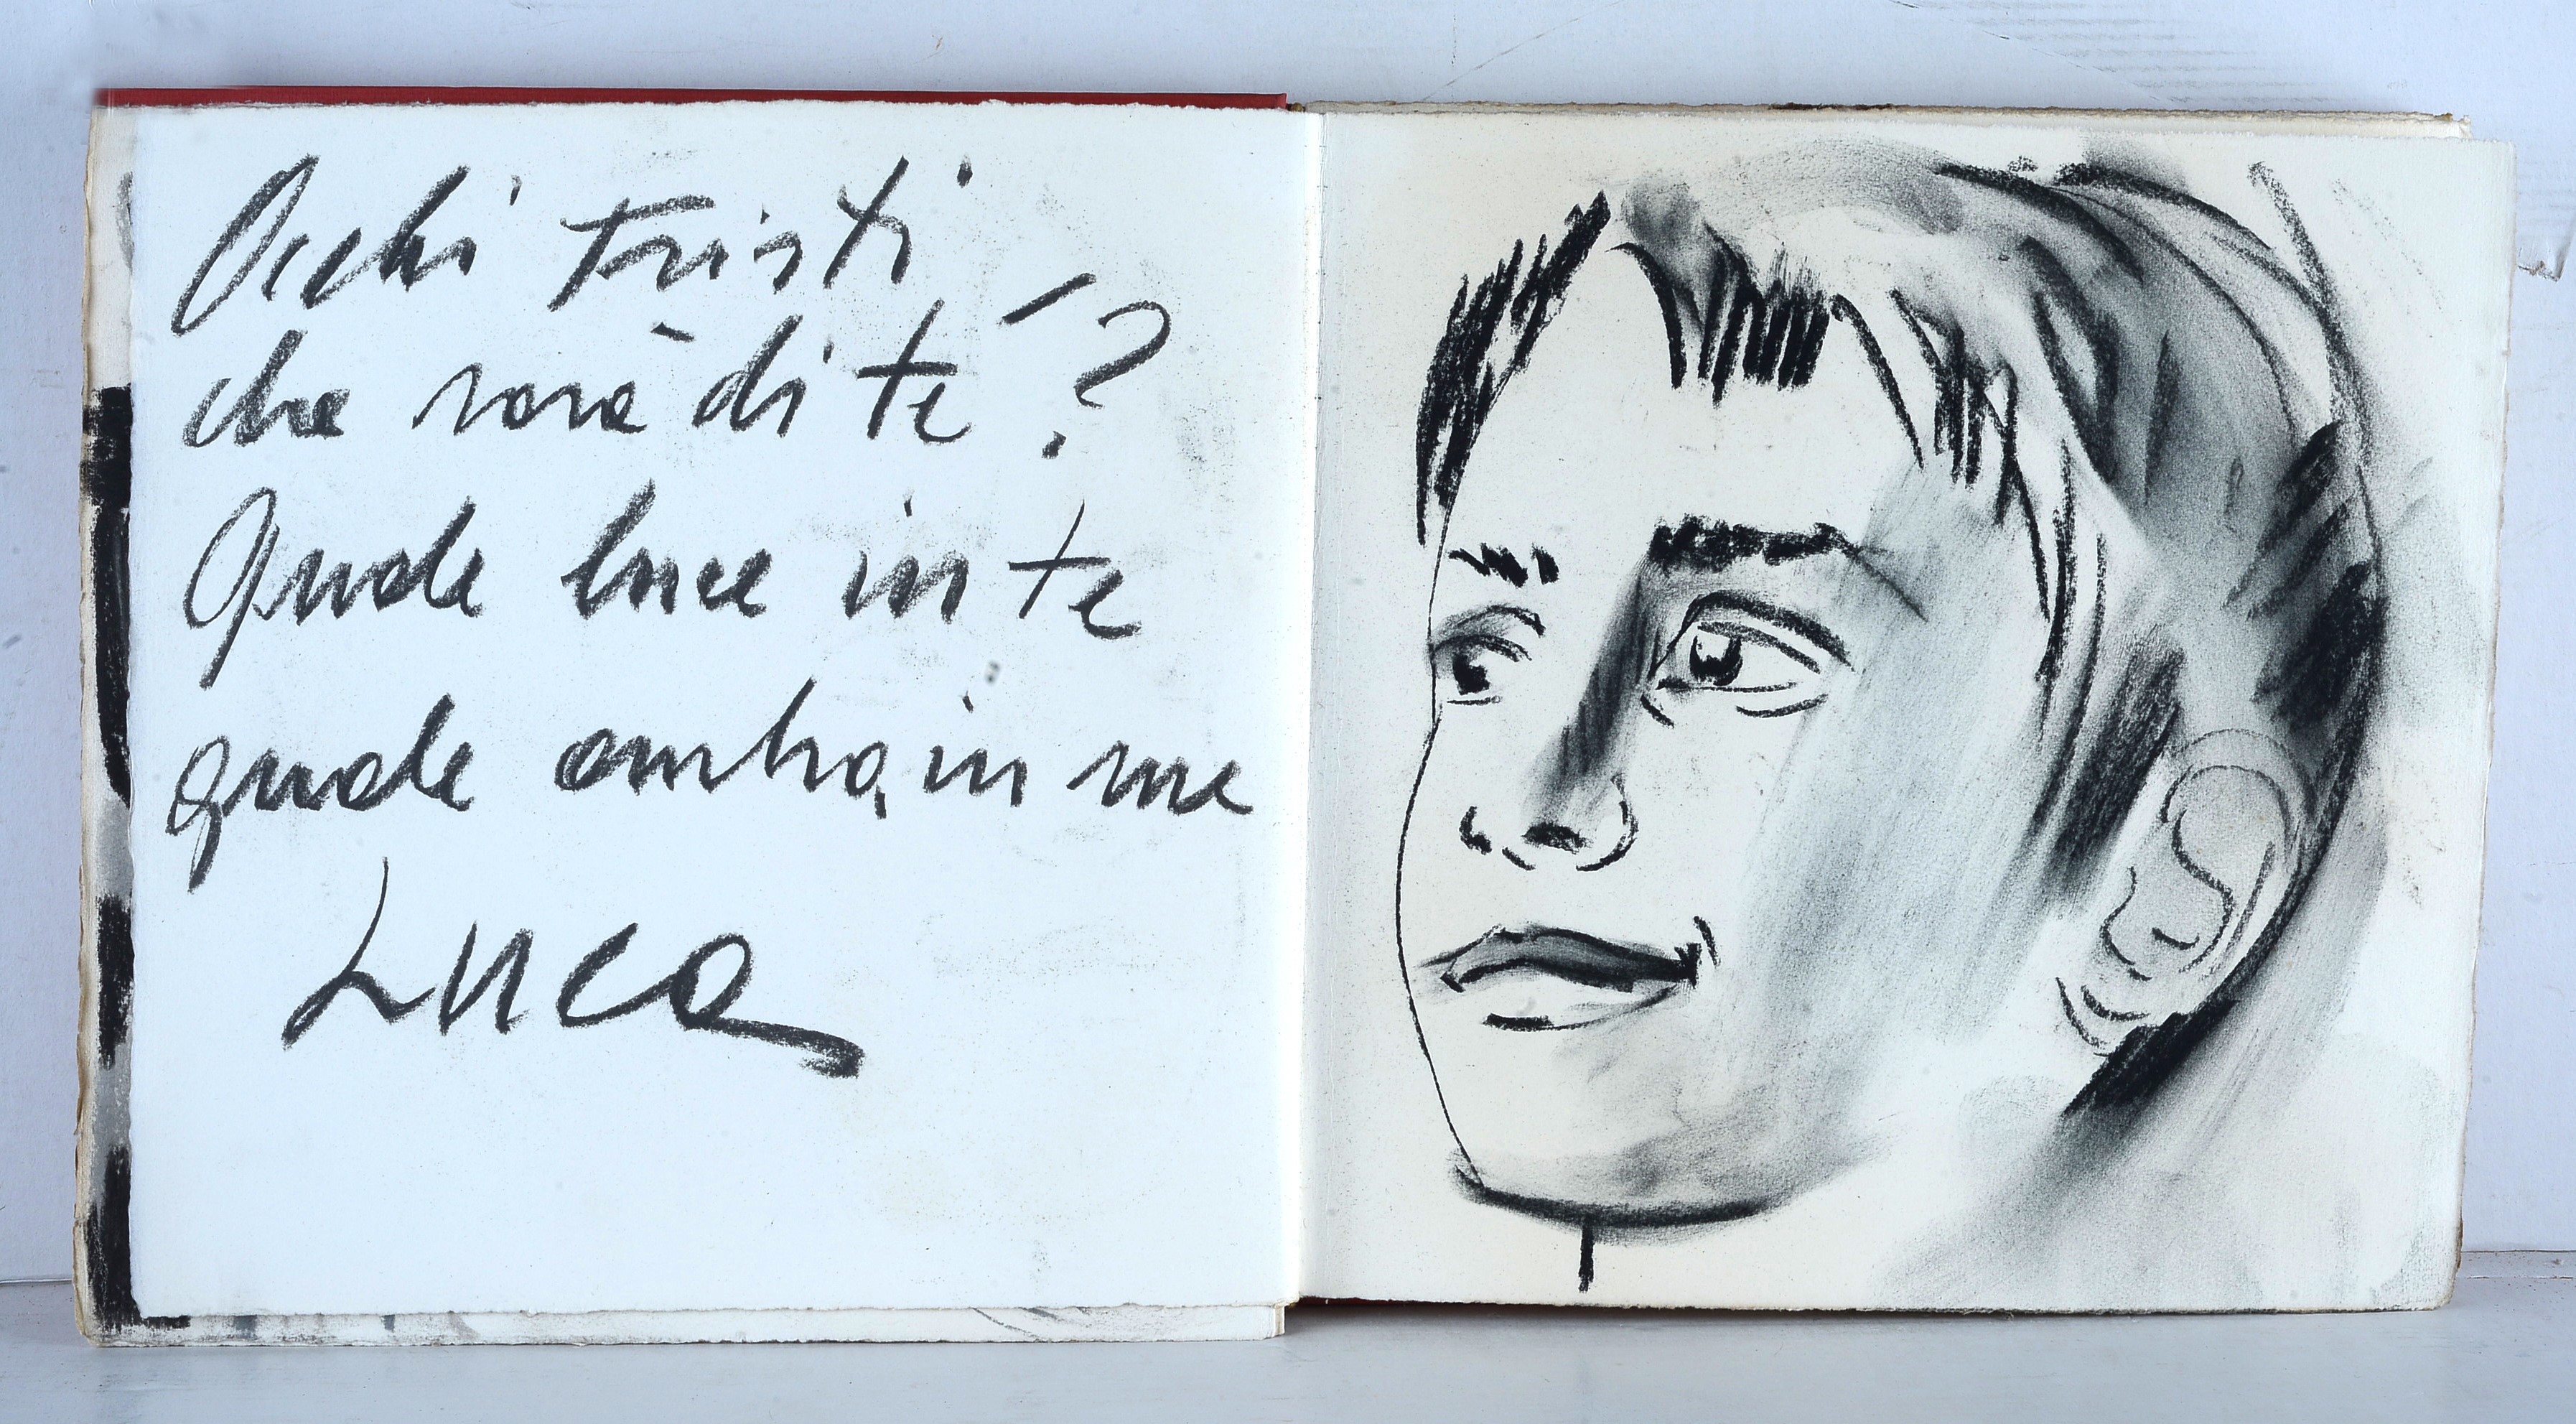 Occhi tristi –
che sarà di te ?
Quale luce in te
quale ombra, in me
Luca